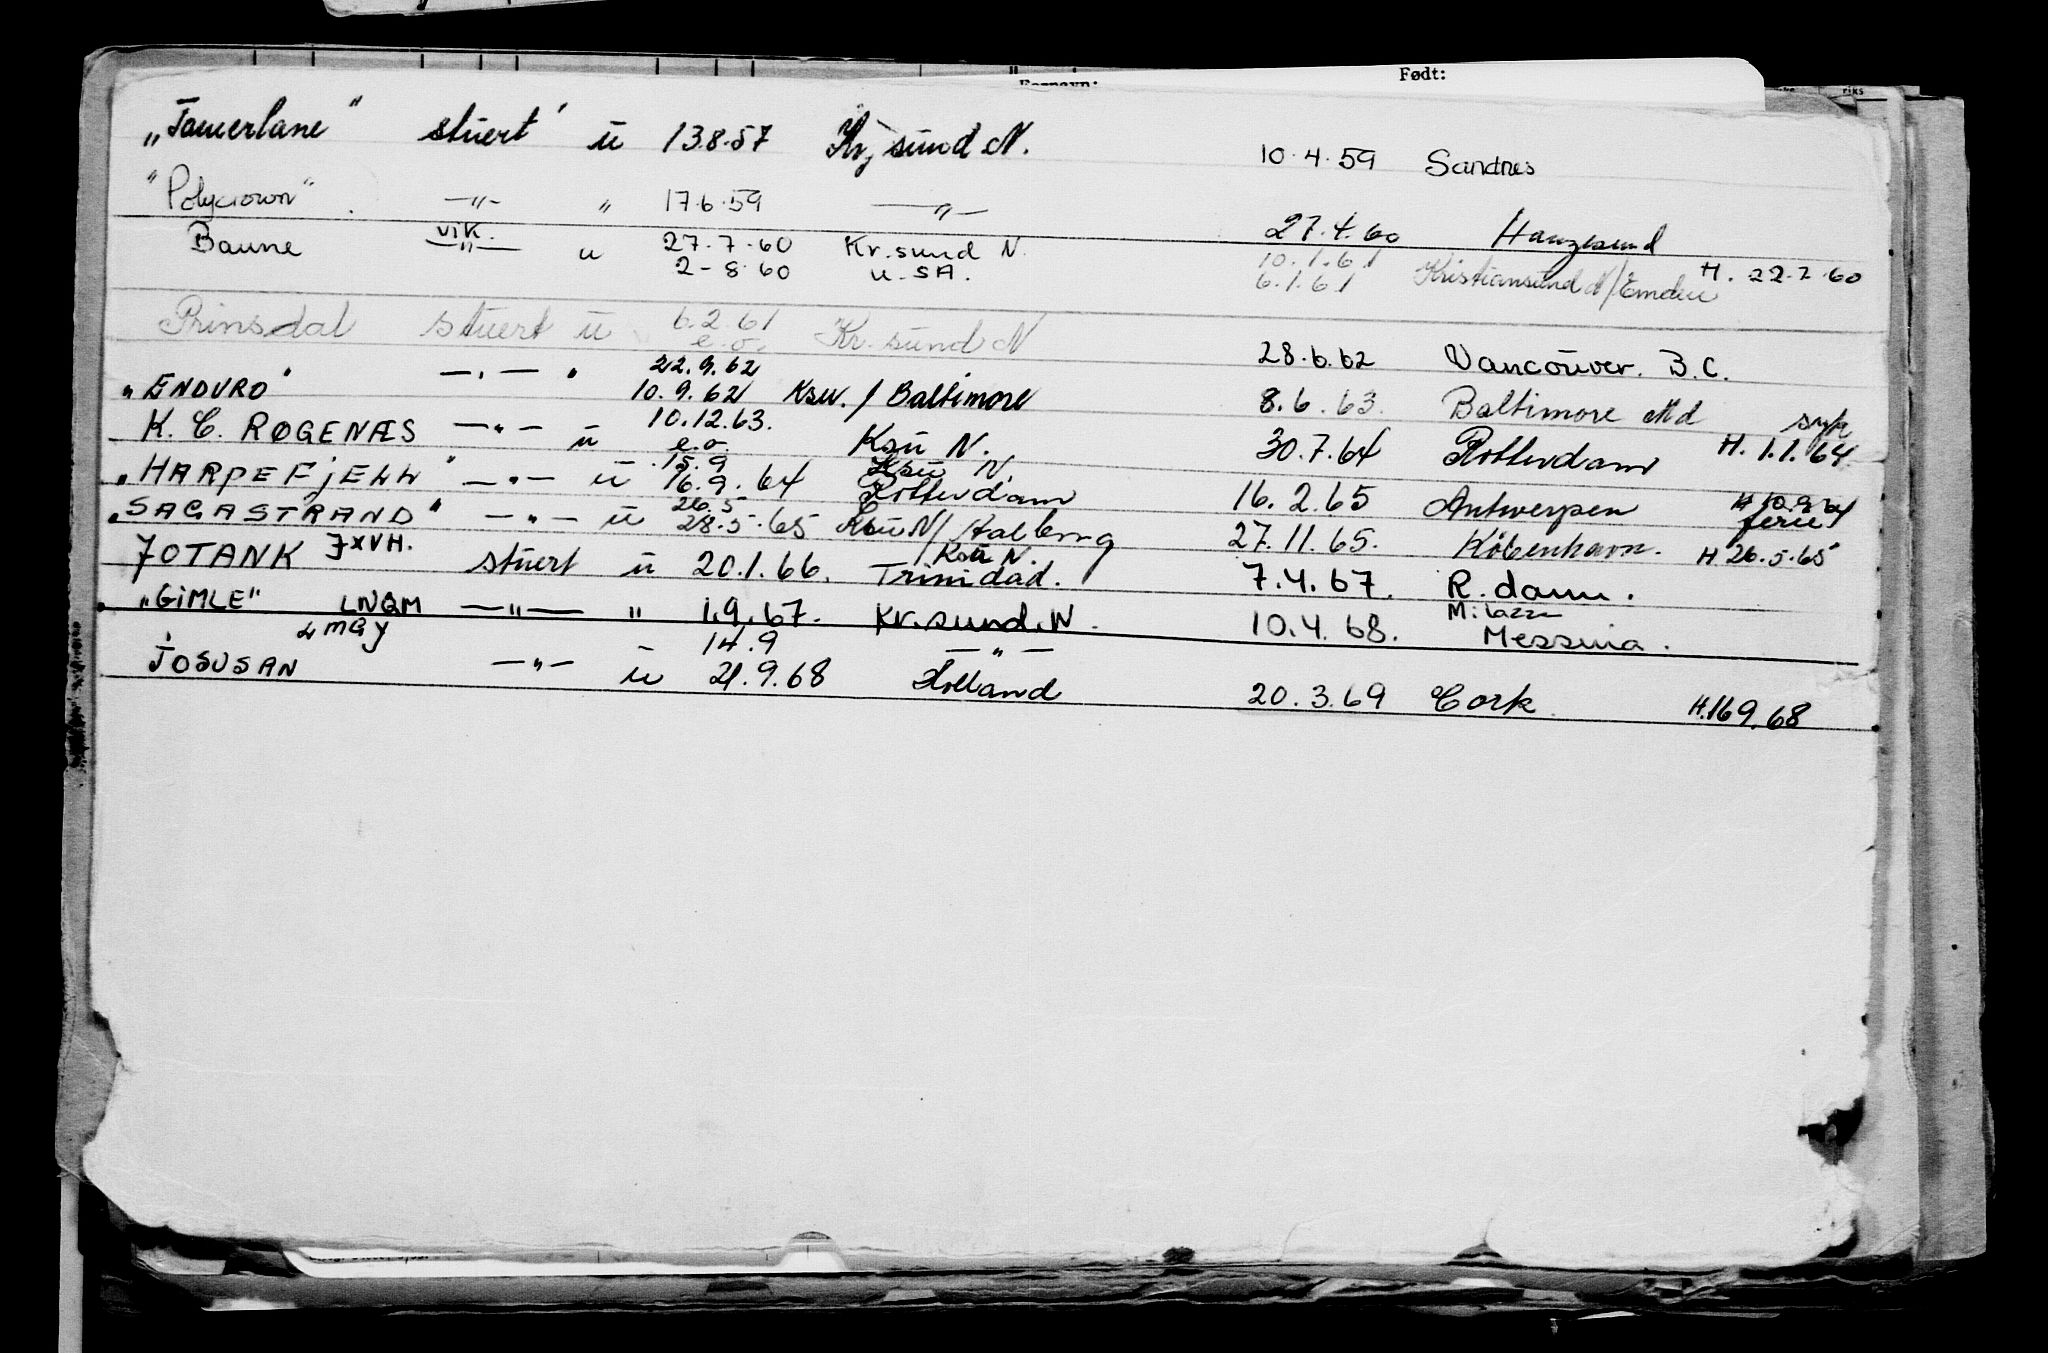 Fornavn: Født:
"Tamerlane" stuert ū 13.8.57 Kr. sund N. 10.4.59 Sandnes
"Polycrown" —"— " 17.6.59 —"— 27.4.60 Haugesund
Baune vik. —"— u 27.7.60 Kr.sund N. 10.1.61 H. 22.7.60
2-8.60 U.SA. 6.1.61 Kristiansund N/Emden
Prinsdal stuert ū 6.2.61 Kr. sund N 28.6.62 Vancouver. B.C.
e.o.
22.9.62
"ENDURO" —"— " 10.9.62 Ksu. / Baltimore 8.6.63. Baltimore Md syk
K. C. RØGENÆS —"— ū 10.12.63. Ksū N. 30.7.64 Rotterdam H. 1.1.64.
e.o.
15.9 Ksū N.
"HARPEFJELL" —"— ū 16.9.64 Rotterdam 16.2.65 Antwerpen ferie
26.5
"SAGASTRAND" —"— ū 28.5.65 Ksū N/ Aalborg 27.11.65. København. H 26.5.65
Ksū N.
JOTANK JXVH. stūert ū 20.1.66. Trinidad. 7.4.67. R.dam.
"GIMLE" LNQM —"— " 1.9.67. Kr.sund.N. 10.4.68. Messina.
LMGY 14.9 —"—
JOSUSAN —"— ū 21.9.68 Holland 20.3.69 Cork H.16.9.68